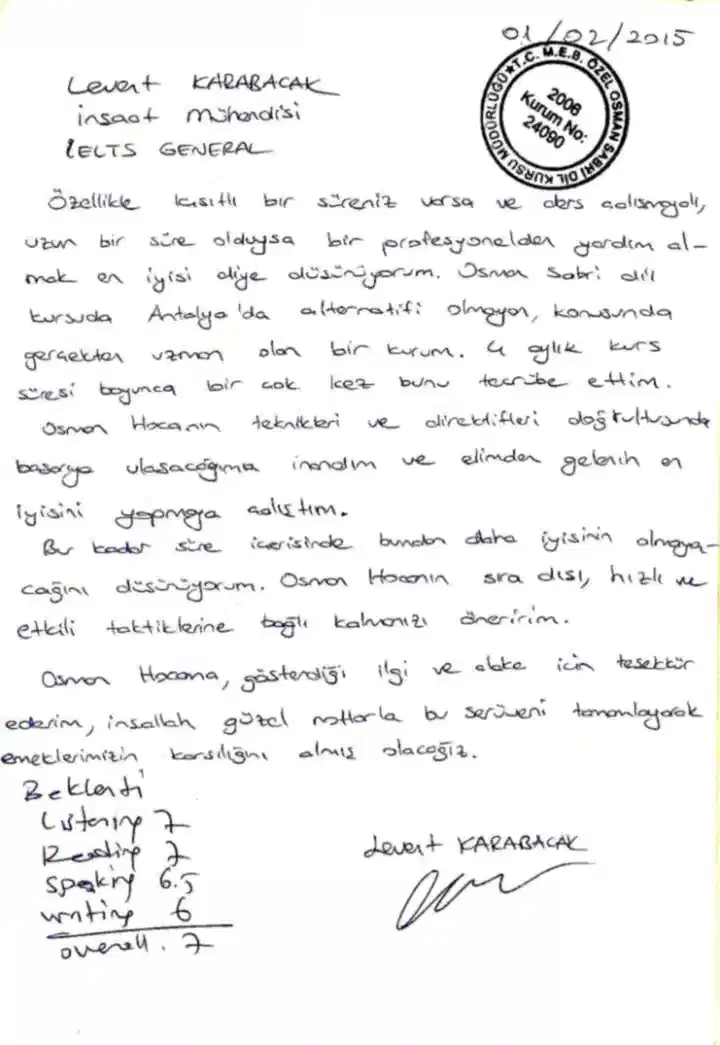 01/02/2015
T.C. M.E.B. ÖZEL OSMAN SABRİ DİL KURSU MÜDÜRLÜĞÜ
2006
Kurum No:
24090
Levent KARABACAK
inşaat Mühendisi
IELTS GENERAL
Özellikle kısıtlı bir süreniz varsa ve ders çalışmayalı,
uzun bir süre olduysa bir profesyonelden yardım al-
mak en iyisi diye düşünüyorum. Osman Sabri dil
kursuda Antalya'da alternatifi olmayan, konusunda
gerçekten uzman olan bir kurum. 4 aylık kurs
süresi boyunca bir çok kez bunu tecrübe ettim.
Osman Hocanın teknikleri ve direktifleri doğrultusunda
başarıya ulaşacağıma inandım ve elimden gelenin en
iyisini yapmaya çalıştım.
Bu kadar süre içerisinde bundan daha iyisinin olmaya-
cağını düşünüyorum. Osman Hocanın sıra dışı, hızlı ve
etkili taktiklerine bağlı kalmanızı öneririm.
Osman Hocama, gösterdiği ilgi ve alaka için teşekkür
ederim, inşallah güzel notlarla bu serüveni tamamlayarak
emeklerimizin karşılığını almış olacağız.
Beklenti
Listening 7
Reading 7
Speaking 6.5
writing 6
overall . 7
Levent KARABACAK